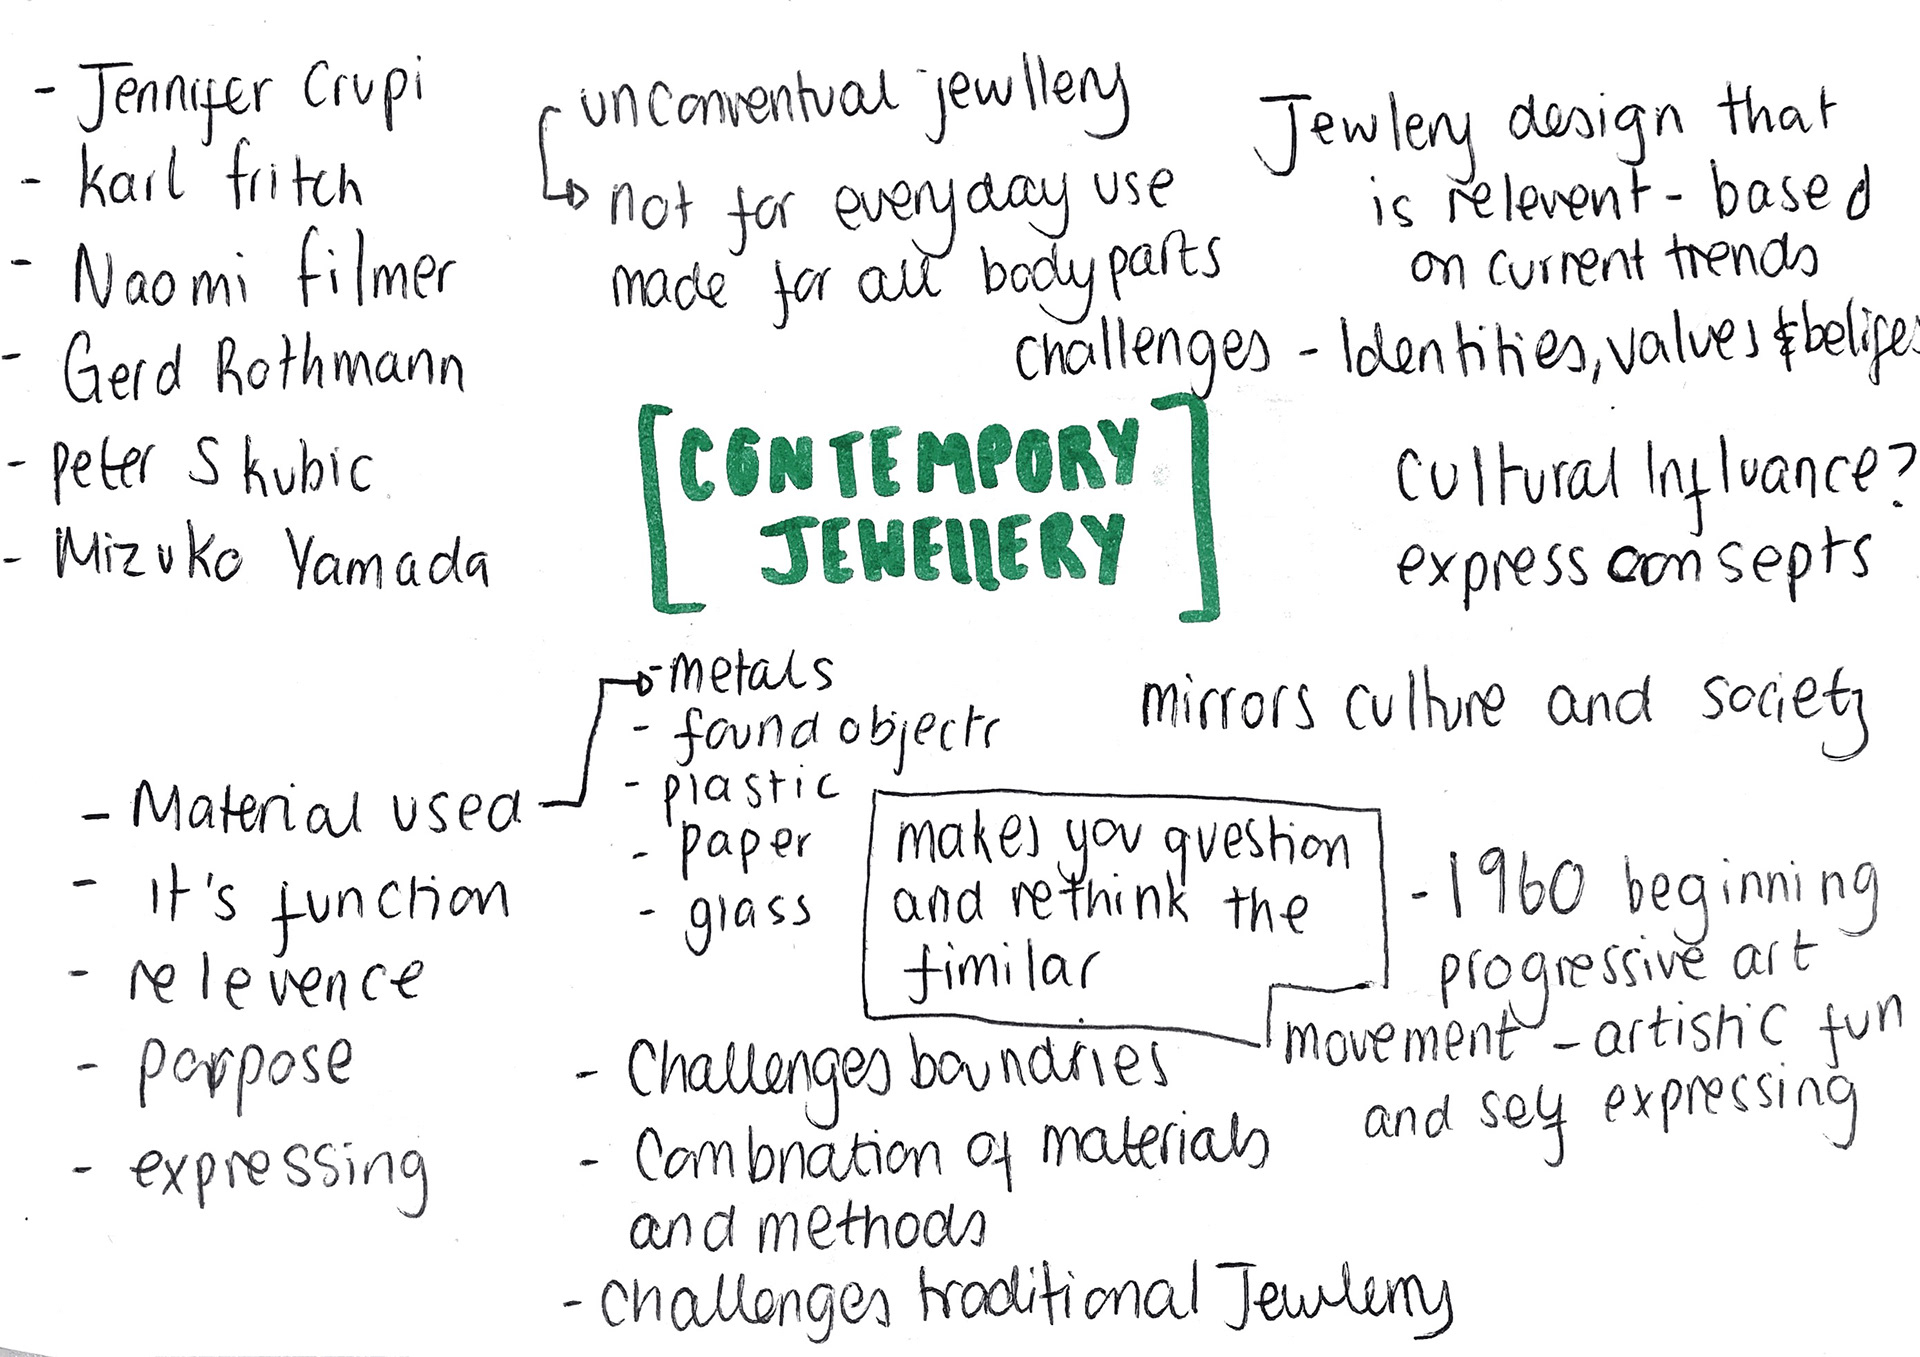 - Jennifer Crupi
- Karl fritch
- Naomi filmer
- Gerd Rothmann
- peter Skubic
- Mizuko Yamada
unconventual jewllery
not for everyday use
made for all body parts
Jewlery design that
is relevent - based
on current trends
challenges - Identities, values & belifes
[CONTEMPORY
JEWELLERY]
Cultural Influance?
express consepts
mirrors culture and society
- Material used
- It's function
- relevence
- porpose
- expressing
- metals
- found objects
- plastic
- paper
- glass
makes you question
and rethink the
fimilar
- 1960 beginning
progressive art
movement - artistic fun
and self expressing
- Challenges boundries
- Combnation of materials
and methods
- Challenges traditional Jewlerry